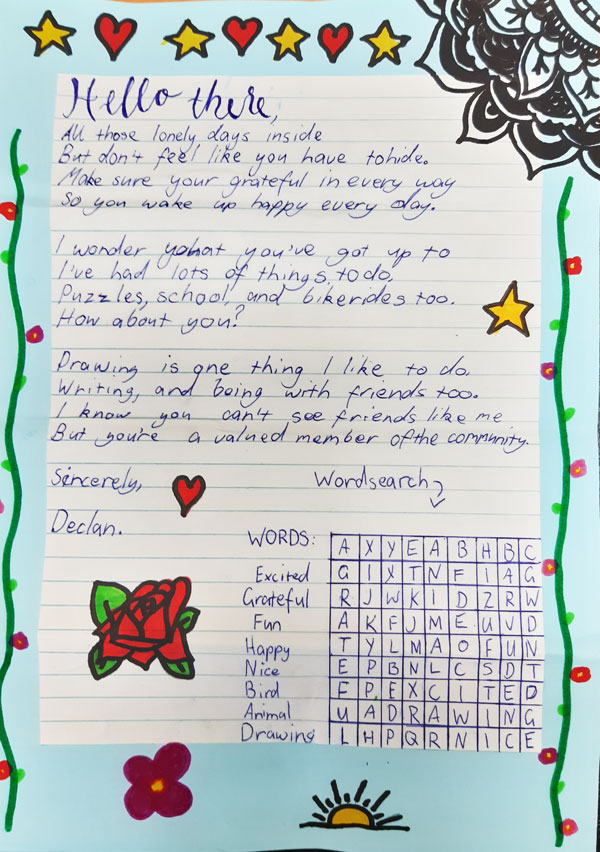 Hello there,
All those lonely days inside
But don't feel like you have to hide.
Make sure your grateful in every way
So you wake up happy every day.
I wonder what you've got up to
I've had lots of things, to do.
Puzzles, school, and bikerides too.
How about you?
Drawing is one thing I like to do.
Writing, and being with friends too.
I know you can't see friends like me
But you're a valued member of the community.
Sincerely,
Declan.
Wordsearch
WORDS:
Excited
Grateful
Fun
Happy
Nice
Bird
Animal
Drawing
A X Y E A B H B C
G I X T N F I A G
R J W K I D Z R W
A K F J M E U V D
T Y L M A O F U N
E P B N L C S D T
F P E X C I T E D
U A D R A W I N G
L H P Q R N I C E